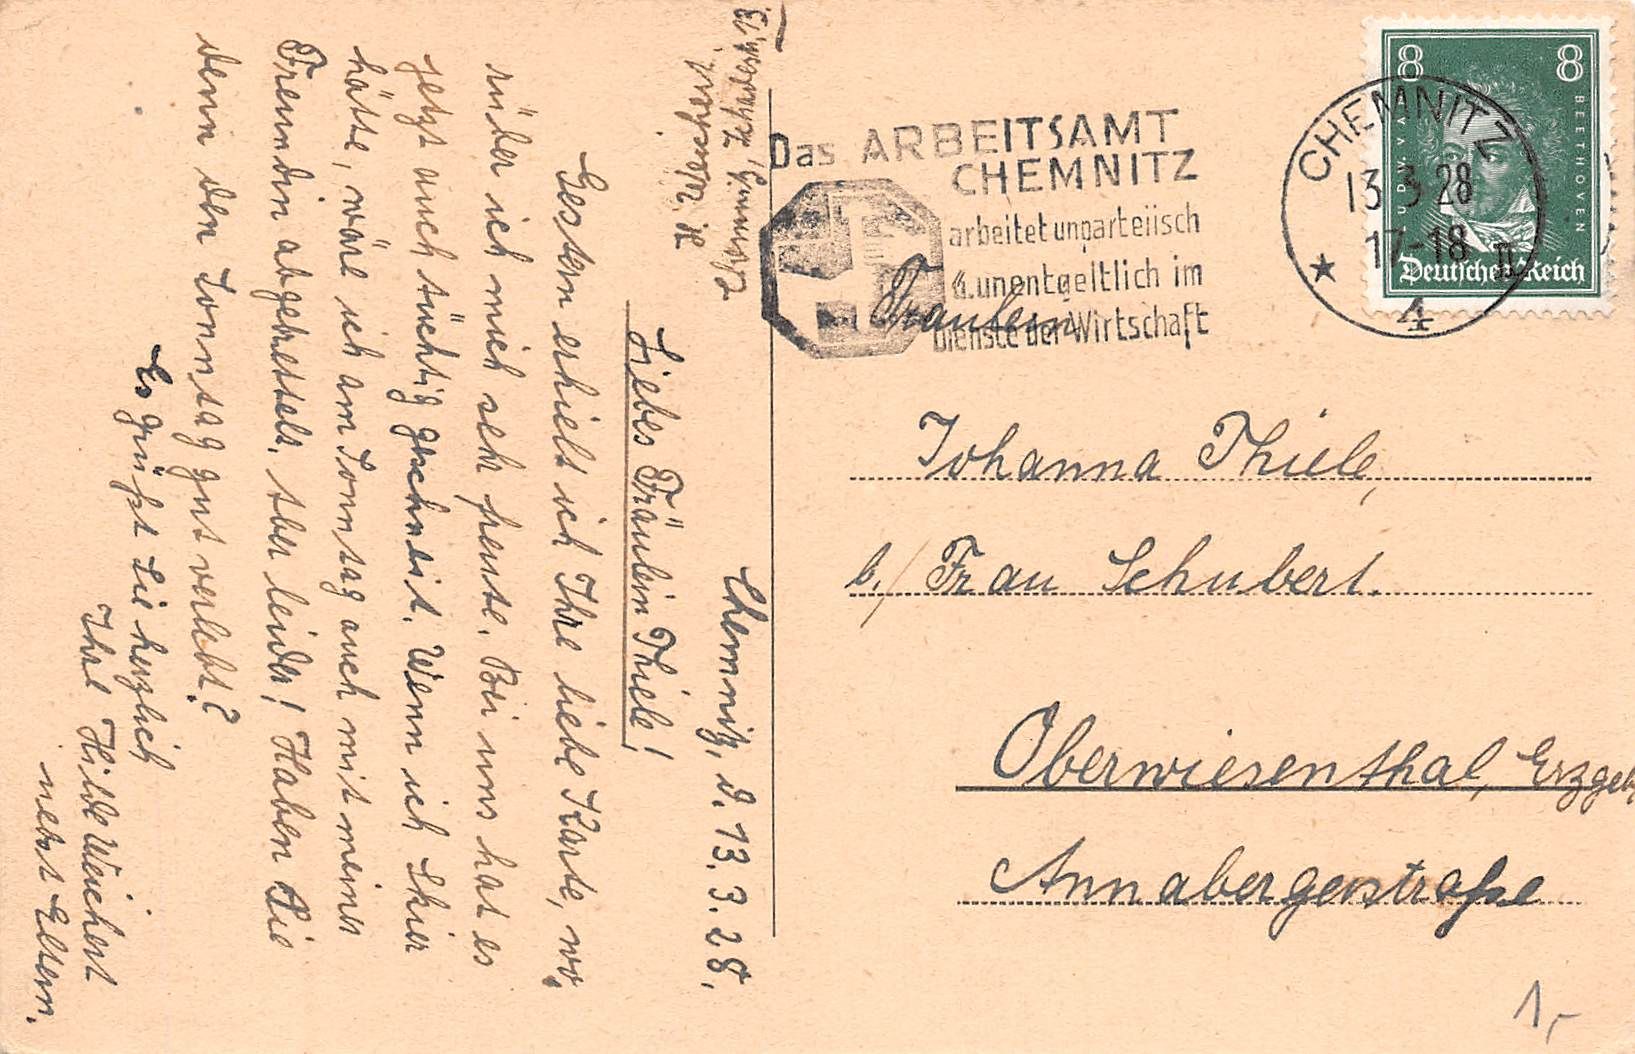 H. Weichert
Chemnitz, Schadestr. 13.
Chemnitz, d. 13. 3. 28.
Liebes Fräulein Thiele!
Gestern erhielt ich Ihre liebe Karte, wo,
rüber ich mich sehr freute. Bei uns hat es
jetzt auch tüchtig geschneit. Wenn ich Skier
hätte, wäre ich am Sonntag auch mit meiner
Freundin abgehettelt. Aber leider! Haben Sie
denn den Sonntag gut verlebt?
Es grüßt Sie herzlich
Ihre Hilde Weichert
nebst Eltern.
Das ARBEITSAMT
CHEMNITZ
arbeitet unparteiisch
u. unentgeltlich im
Dienste der Wirtschaft
CHEMNITZ
13 3 28
17-18 II
★ 4
8 8
LUDW. VAN
BEETHOVEN
Deutsches Reich
Fräulein
Johanna Thiele,
b./ Frau Schubert.
Oberwiesenthal, Erzgeb.
Annabergerstraße
1,-